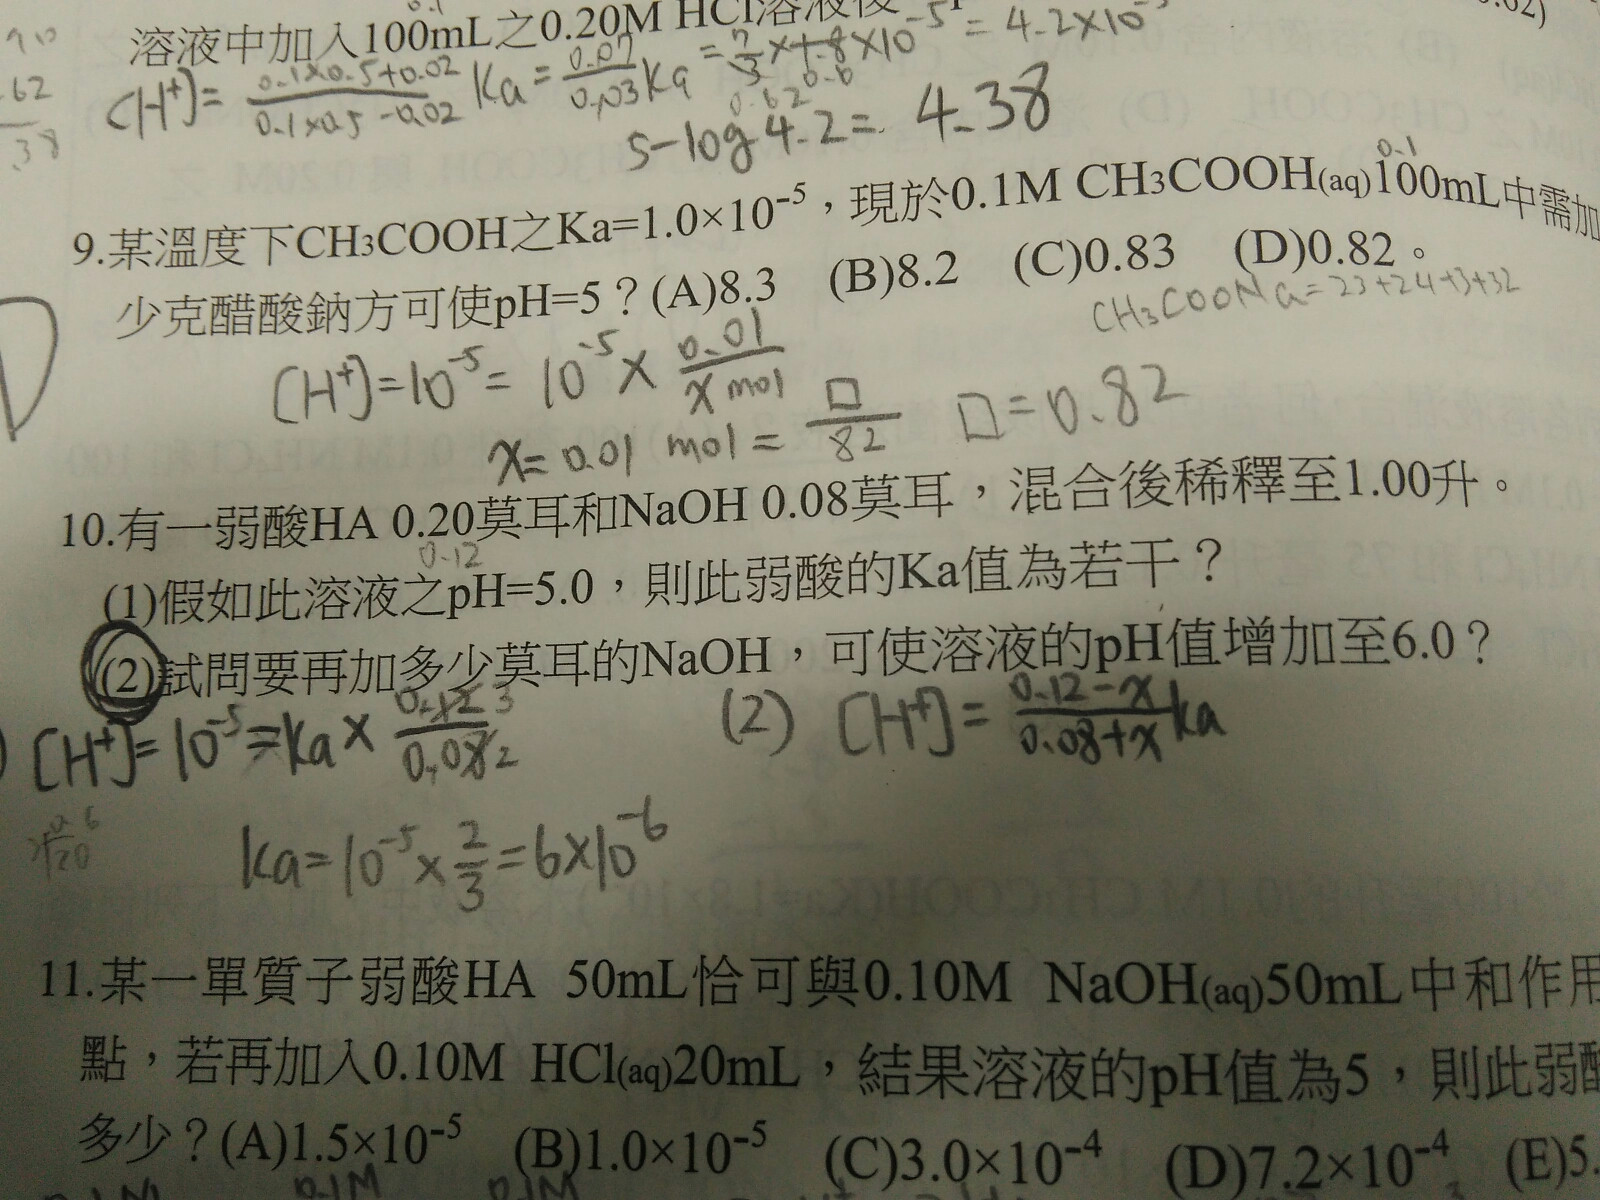 溶液中加入100mL之0.20M HCl溶液後
0.1
[H⁺]= (0.1×0.5+0.02)/(0.1×0.5-0.02) Ka = 0.07/0.03 Ka = 7/3 × 1.8 × 10⁻⁵ = 4.2×10
0.62 0.6
5-log 4.2 = 4.38
0.1
9.某溫度下CH₃COOH之Ka=1.0×10⁻⁵，現於0.1M CH₃COOH(aq)100mL中需加
少克醋酸鈉方可使pH=5？(A)8.3 (B)8.2 (C)0.83 (D)0.82。
CH₃COONa=23+24+3+32
D
[H⁺]=10⁻⁵= 10⁻⁵ × 0.01/x mol
x= 0.01 mol = □/82 □=0.82
10.有一弱酸HA 0.20莫耳和NaOH 0.08莫耳，混合後稀釋至1.00升。
0.12
(1)假如此溶液之pH=5.0，則此弱酸的Ka值為若干？
(2)試問要再加多少莫耳的NaOH，可使溶液的pH值增加至6.0？
[H⁺]=10⁻⁵=Ka× 0.12 3/0.08 2
(2) [H⁺]= (0.12-x)/(0.08+x) Ka
Ka=10⁻⁵×2/3=6×10⁻⁶
11.某一單質子弱酸HA 50mL恰可與0.10M NaOH(aq)50mL中和作用
點，若再加入0.10M HCl(aq)20mL，結果溶液的pH值為5，則此弱酸
多少？(A)1.5×10⁻⁵ (B)1.0×10⁻⁵ (C)3.0×10⁻⁴ (D)7.2×10⁻⁴ (E)5.
0.1M 0.1M 0.1M